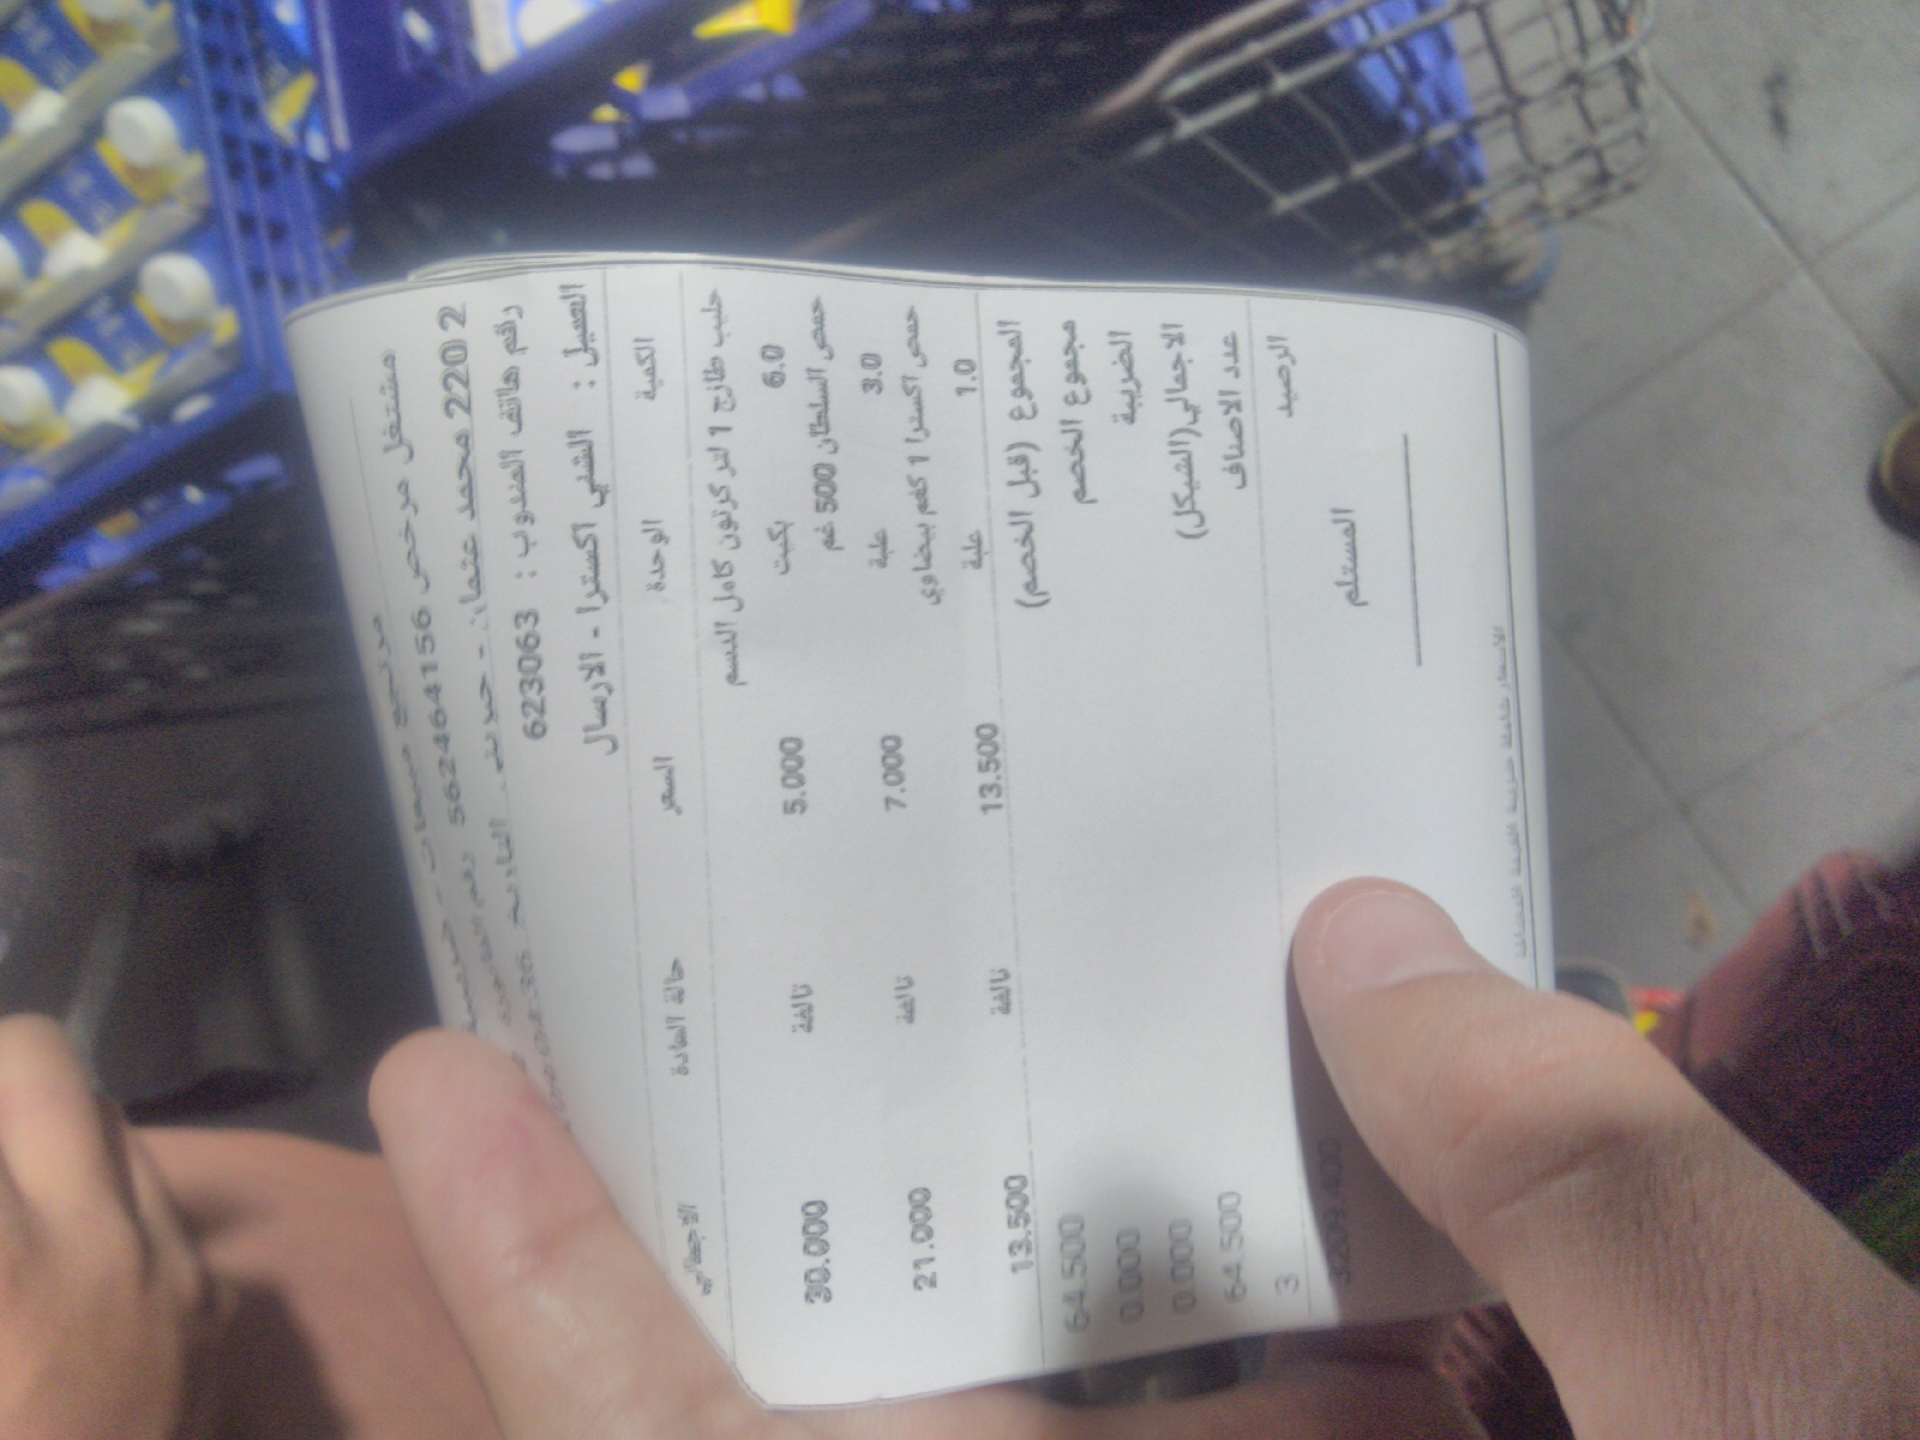 مرتجع مبيعات -
مشتغل مرخص 562464156 رقم
2 220 محمد عثمان - التاريخ
رقم هاتف المندوب : 623063
العميل : الشني اكسترا - الارسال
الكمية الوحدة السعر حالة المادة الاجمالي
حليب طازج 1 لتر كرتون كامل الدسم
6.0 بكيت 5.000 تالفة 30.000
حمص السلطان 500 غم
3.0 علبة 7.000 تالفة 21.000
حمص اكسترا 1 كغم بيضاوي
1.0 علبة 13.500 تالفة 13.500
المجموع (قبل الخصم) 64.500
مجموع الخصم 0.000
الضريبة 0.000
الاجمالي(الشيكل) 64.500
عدد الاصناف 3
الرصيد
المستلم
الاسعار شاملة ضريبة القيمة المضافة